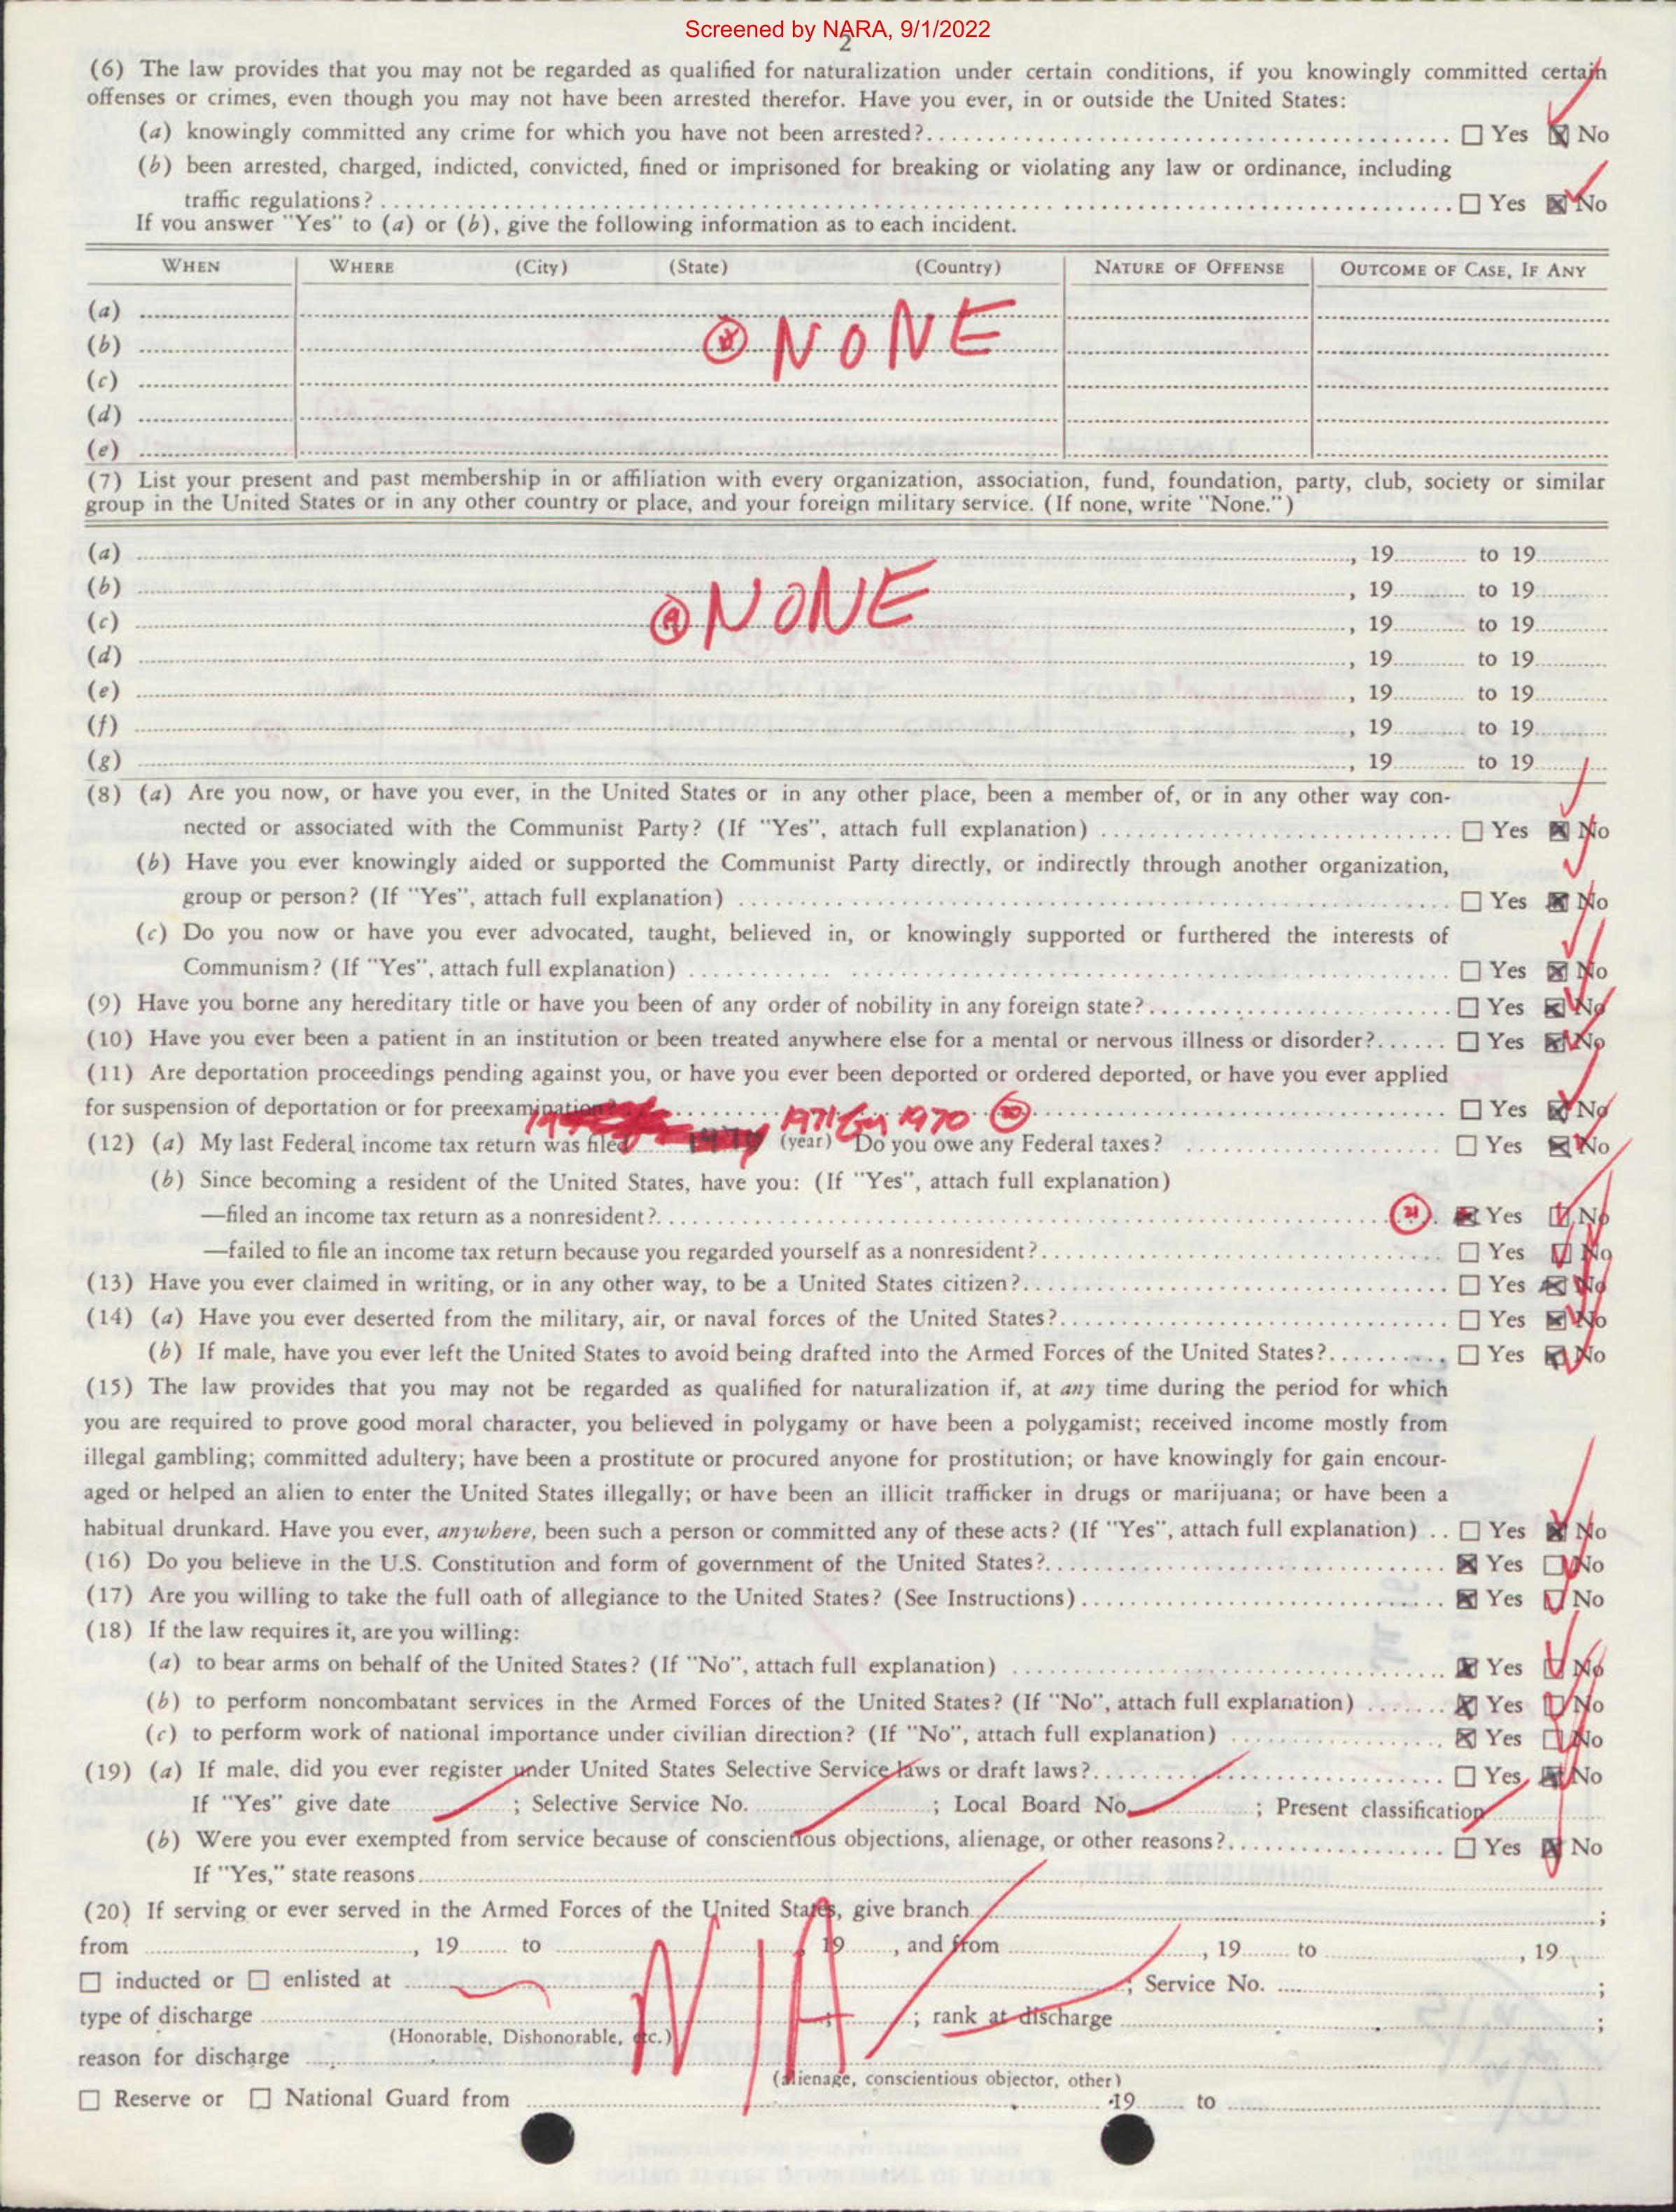 Screened by NARA, 9/1/2022
2
(6) The law provides that you may not be regarded as qualified for naturalization under certain conditions, if you knowingly committed certain
offenses or crimes, even though you may not have been arrested therefor. Have you ever, in or outside the United States:
(a) knowingly committed any crime for which you have not been arrested? ☐ Yes ☒ No
(b) been arrested, charged, indicted, convicted, fined or imprisoned for breaking or violating any law or ordinance, including
traffic regulations? ☐ Yes ☒ No
If you answer "Yes" to (a) or (b), give the following information as to each incident.
WHEN WHERE (City) (State) (Country) NATURE OF OFFENSE OUTCOME OF CASE, IF ANY
(a)
(b) NONE
(c)
(d)
(e)
(7) List your present and past membership in or affiliation with every organization, association, fund, foundation, party, club, society or similar
group in the United States or in any other country or place, and your foreign military service. (If none, write "None.")
(a) , 19 to 19
(b) , 19 to 19
(c) NONE , 19 to 19
(d) , 19 to 19
(e) , 19 to 19
(f) , 19 to 19
(g) , 19 to 19
(8) (a) Are you now, or have you ever, in the United States or in any other place, been a member of, or in any other way con-
nected or associated with the Communist Party? (If "Yes", attach full explanation) ☐ Yes ☒ No
(b) Have you ever knowingly aided or supported the Communist Party directly, or indirectly through another organization,
group or person? (If "Yes", attach full explanation) ☐ Yes ☒ No
(c) Do you now or have you ever advocated, taught, believed in, or knowingly supported or furthered the interests of
Communism? (If "Yes", attach full explanation) ☐ Yes ☒ No
(9) Have you borne any hereditary title or have you been of any order of nobility in any foreign state? ☐ Yes ☒ No
(10) Have you ever been a patient in an institution or been treated anywhere else for a mental or nervous illness or disorder? ☐ Yes ☒ No
(11) Are deportation proceedings pending against you, or have you ever been deported or ordered deported, or have you ever applied
for suspension of deportation or for preexamination? ☐ Yes ☒ No
1971 for 1970 20
(12) (a) My last Federal income tax return was filed (year) Do you owe any Federal taxes? ☐ Yes ☒ No
(b) Since becoming a resident of the United States, have you: (If "Yes", attach full explanation)
—filed an income tax return as a nonresident? 21 ☒ Yes ☐ No
—failed to file an income tax return because you regarded yourself as a nonresident? ☐ Yes ☐ No
(13) Have you ever claimed in writing, or in any other way, to be a United States citizen? ☐ Yes ☒ No
(14) (a) Have you ever deserted from the military, air, or naval forces of the United States? ☐ Yes ☒ No
(b) If male, have you ever left the United States to avoid being drafted into the Armed Forces of the United States? ☐ Yes ☒ No
(15) The law provides that you may not be regarded as qualified for naturalization if, at any time during the period for which
you are required to prove good moral character, you believed in polygamy or have been a polygamist; received income mostly from
illegal gambling; committed adultery; have been a prostitute or procured anyone for prostitution; or have knowingly for gain encour-
aged or helped an alien to enter the United States illegally; or have been an illicit trafficker in drugs or marijuana; or have been a
habitual drunkard. Have you ever, anywhere, been such a person or committed any of these acts? (If "Yes", attach full explanation) ☐ Yes ☒ No
(16) Do you believe in the U.S. Constitution and form of government of the United States? ☒ Yes ☐ No
(17) Are you willing to take the full oath of allegiance to the United States? (See Instructions) ☒ Yes ☐ No
(18) If the law requires it, are you willing:
(a) to bear arms on behalf of the United States? (If "No", attach full explanation) ☒ Yes ☐ No
(b) to perform noncombatant services in the Armed Forces of the United States? (If "No", attach full explanation) ☒ Yes ☐ No
(c) to perform work of national importance under civilian direction? (If "No", attach full explanation) ☒ Yes ☐ No
(19) (a) If male, did you ever register under United States Selective Service laws or draft laws? ☐ Yes ☒ No
If "Yes" give date ; Selective Service No. ; Local Board No. ; Present classification
(b) Were you ever exempted from service because of conscientious objections, alienage, or other reasons? ☐ Yes ☒ No
If "Yes," state reasons
(20) If serving or ever served in the Armed Forces of the United States, give branch ;
from , 19 to , 19 , and from , 19 to , 19
☐ inducted or ☐ enlisted at ; Service No. ;
N/A
type of discharge ; rank at discharge ;
(Honorable, Dishonorable, etc.)
reason for discharge
(alienage, conscientious objector, other)
☐ Reserve or ☐ National Guard from 19 to